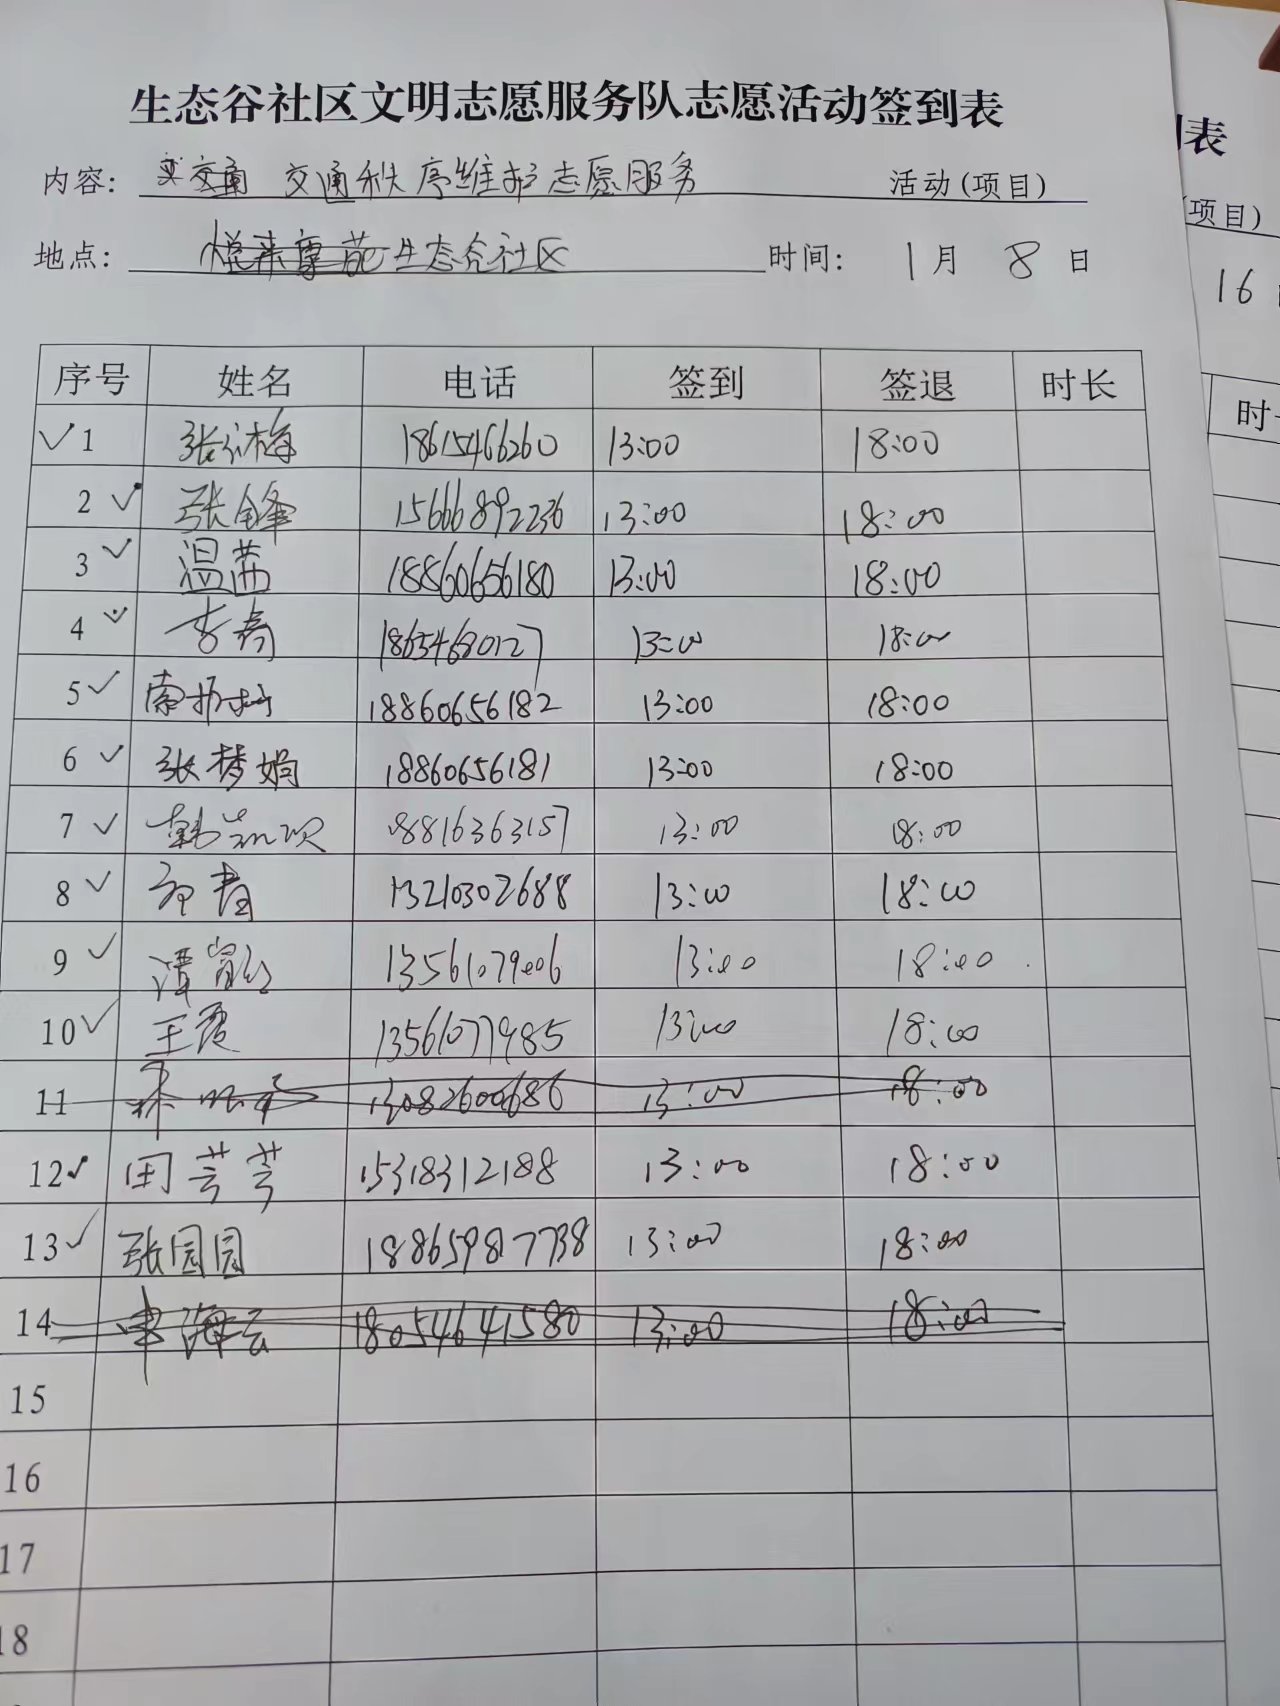 生态谷社区文明志愿服务队志愿活动签到表
内容: 交通秩序维护志愿服务 活动(项目)
地点: 生态谷社区 时间: 1月8日
序号 姓名 电话 签到 签退 时长
1 18615466260 13:00 18:00
2 张锋 15666892236 13:00 18:00
3 温茜 18860656180 13:00 18:00
4 18654680127 13:00 18:00
5 18860656182 13:00 18:00
6 张梦娟 18860656181 13:00 18:00
7 18816363157 13:00 18:00
8 13210302688 13:00 18:00
9 谭 13561079006 13:00 18:00
10 王霞 13561077985 13:00 18:00
11 13082600686 13:00 18:00
12 田芸芸 15318312188 13:00 18:00
13 张园园 18865987738 13:00 18:00
14 海云 18054641580 13:00 18:00
15
16
17
18
表
(项目)
16
时